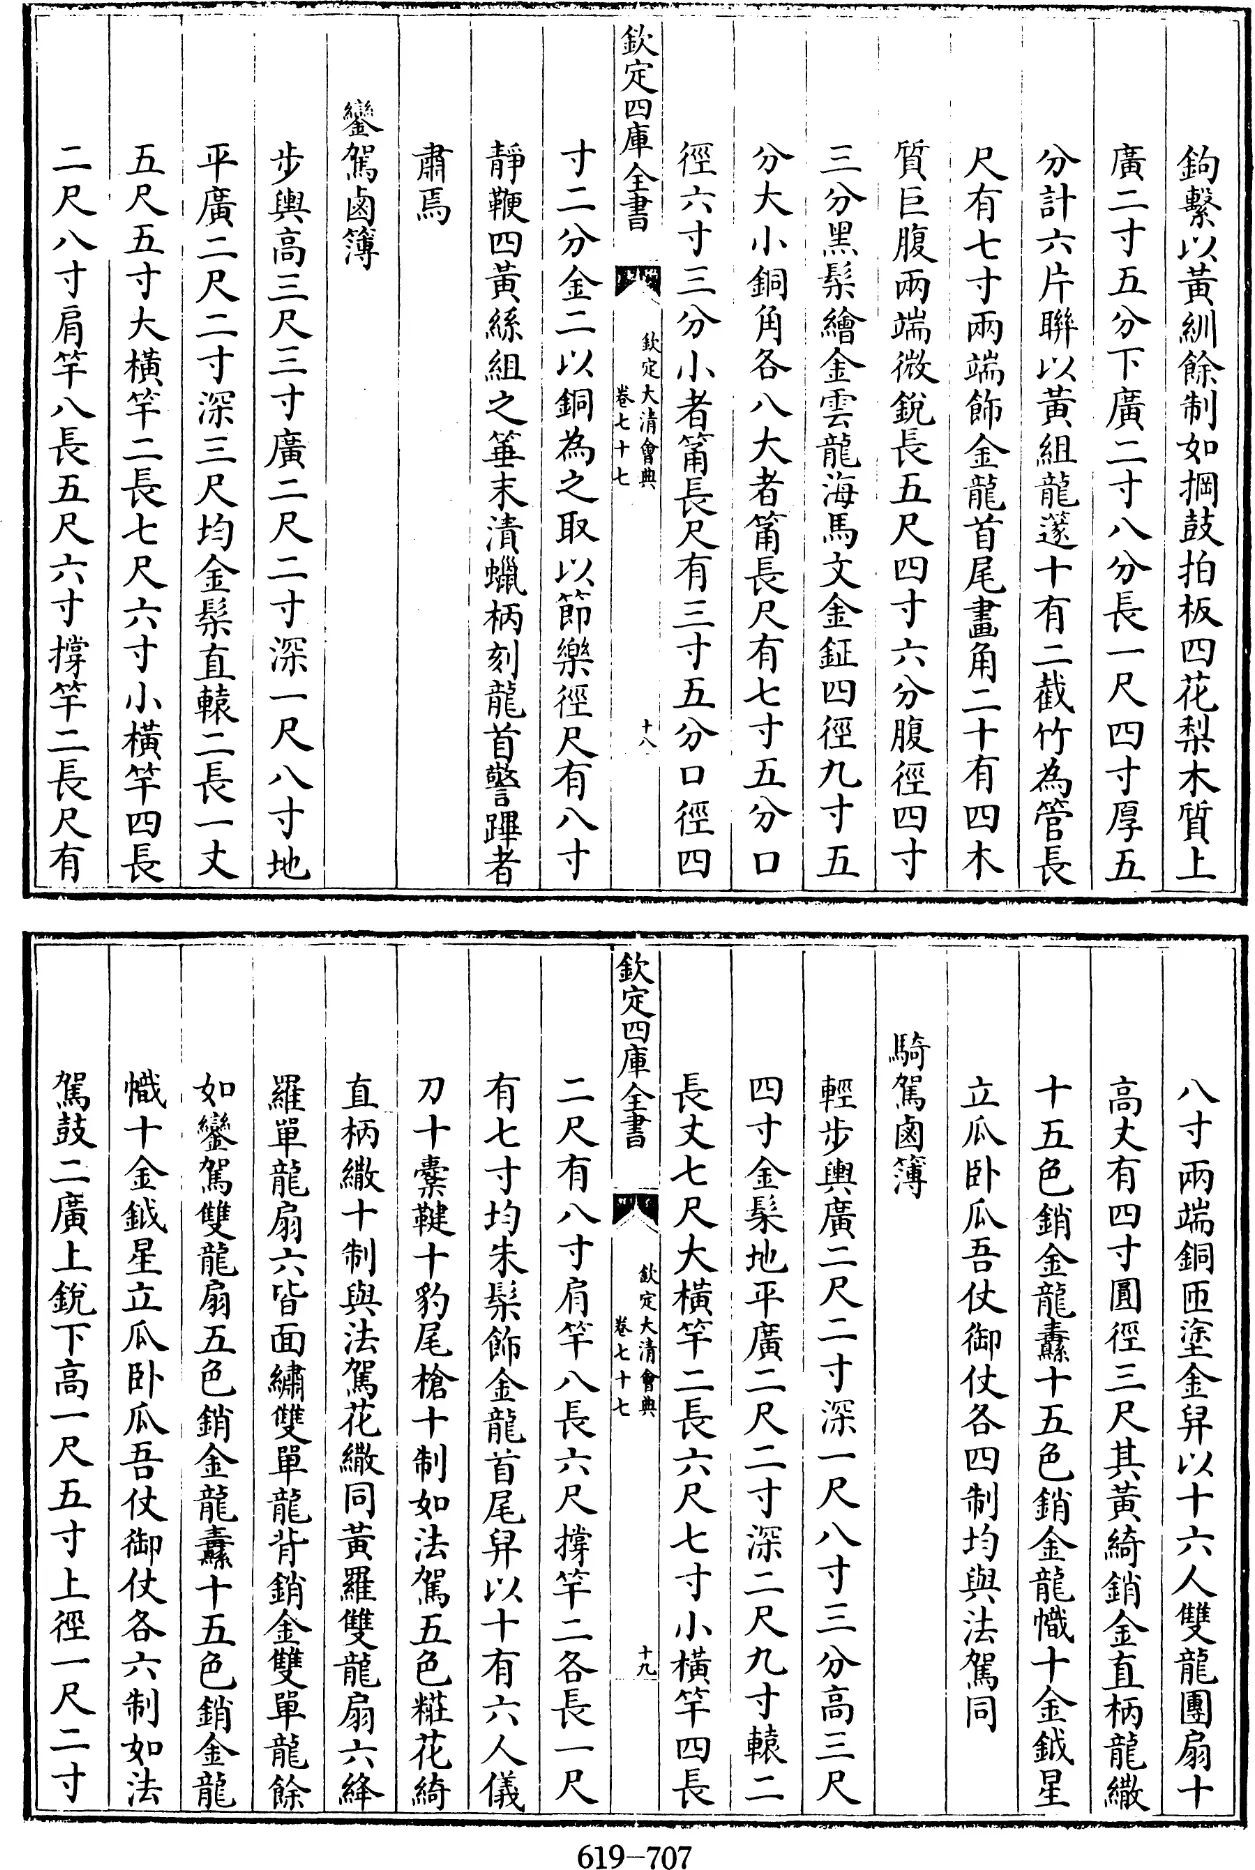 鉤繫以黃紃餘制如掆鼓拍板四花梨木質上
廣二寸五分下廣二寸八分長一尺四寸厚五
分計六片聯以黃組龍篴十有二截竹為管長
尺有七寸兩端飾金龍首尾畫角二十有四木
質巨腹兩端微銳長五尺四寸六分腹徑四寸
三分黑髹繪金雲龍海馬文金鉦四徑九寸五
分大小銅角各八大者筩長尺有七寸五分口
徑六寸三分小者筩長尺有三寸五分口徑四
欽定四庫全書
欽定大清會典
卷七十七
十八
寸二分金二以銅為之取以節樂徑尺有八寸
靜鞭四黃絲組之箠末漬蠟柄刻龍首警蹕者
肅焉
鑾駕鹵簿
步輿高三尺三寸廣二尺二寸深一尺八寸地
平廣二尺二寸深三尺均金髹直轅二長一丈
五尺五寸大橫竿二長七尺六寸小橫竿四長
二尺八寸肩竿八長五尺六寸撐竿二長尺有
八寸兩端銅匝塗金舁以十六人雙龍團扇十
高丈有四寸圓徑三尺其黃綺銷金直柄龍繖
十五色銷金龍纛十五色銷金龍幟十金鉞星
立瓜卧瓜吾仗御仗各四制均與法駕同
騎駕鹵簿
輕步輿廣二尺二寸深一尺八寸三分高三尺
四寸金髹地平廣二尺二寸深二尺九寸轅二
長丈七尺大橫竿二長六尺七寸小橫竿四長
欽定四庫全書
欽定大清會典
卷七十七
十九
二尺有八寸肩竿八長六尺撐竿二各長一尺
有七寸均朱髹飾金龍首尾舁以十有六人儀
刀十櫜鞬十豹尾槍十制如法駕五色粧花綺
直柄繖十制與法駕花繖同黃羅雙龍扇六絳
羅單龍扇六皆面繡雙單龍背銷金雙單龍餘
如鑾駕雙龍扇五色銷金龍纛十五色銷金龍
幟十金鉞星立瓜卧瓜吾仗御仗各六制如法
駕鼓二廣上銳下高一尺五寸上徑一尺二寸
619-707